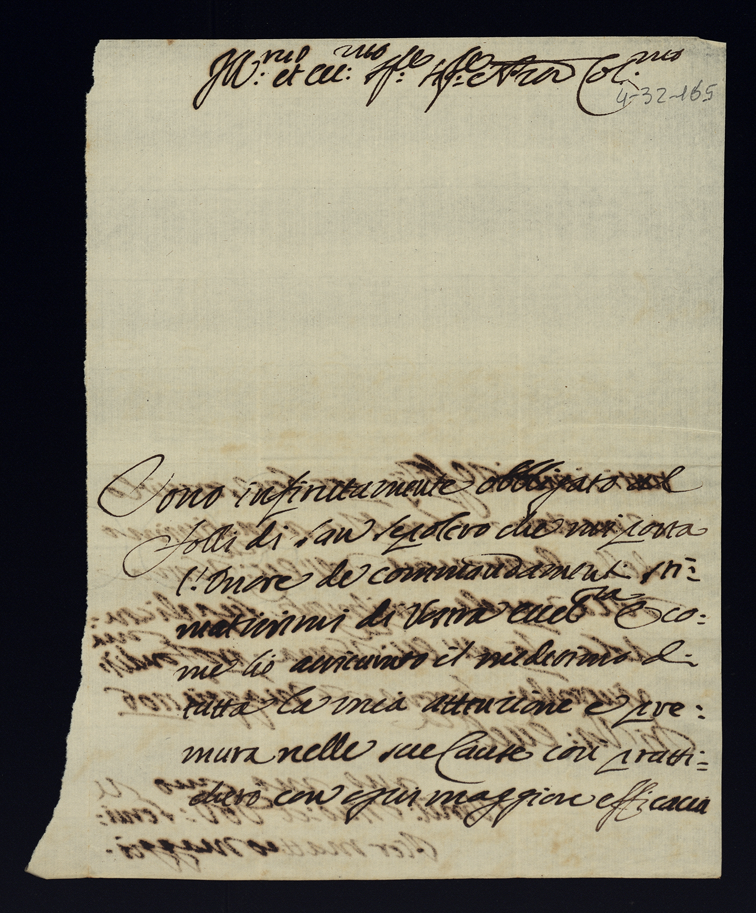 Ill:mo et ecc:mo Sig:re Sig:re e Pron Col:mo
4-32-165
Sono infinitamente obbligato al
Folli di San Sepolcro che mi porta
l'Onore de commandamenti sti=
matissimi di Vostra ecc:za E co=
me ho assicurato il medesimo di
tutta la mia attenzione e pre=
mura nelle sue Cause cosi pratti=
cherò con ogni maggiore efficacia